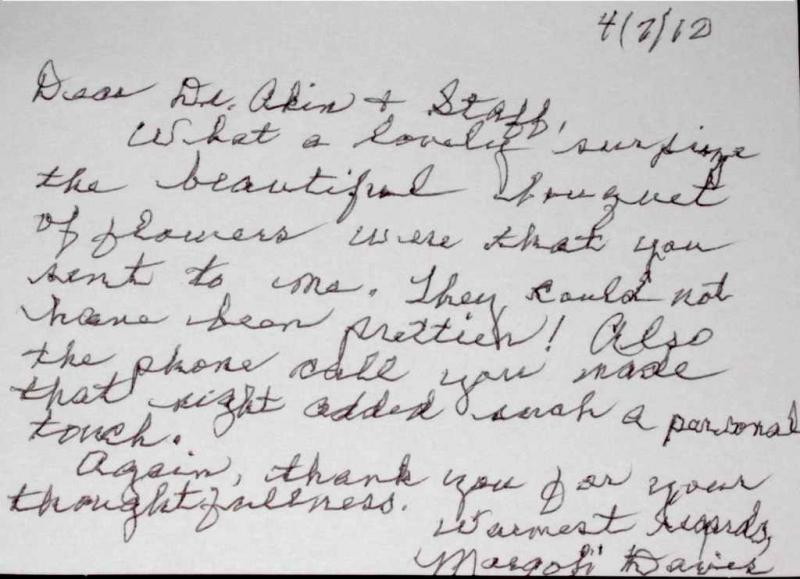 4/7/12
Dear Dr. Akin + Staff,
What a lovely surprize
the beautiful bouquet
of flowers were that you
sent to me. They could not
have been prettier! Also
the phone call you made
that night added such a personal
touch.
Again, thank you for your
thoughtfullness.
Warmest regards,
Davis